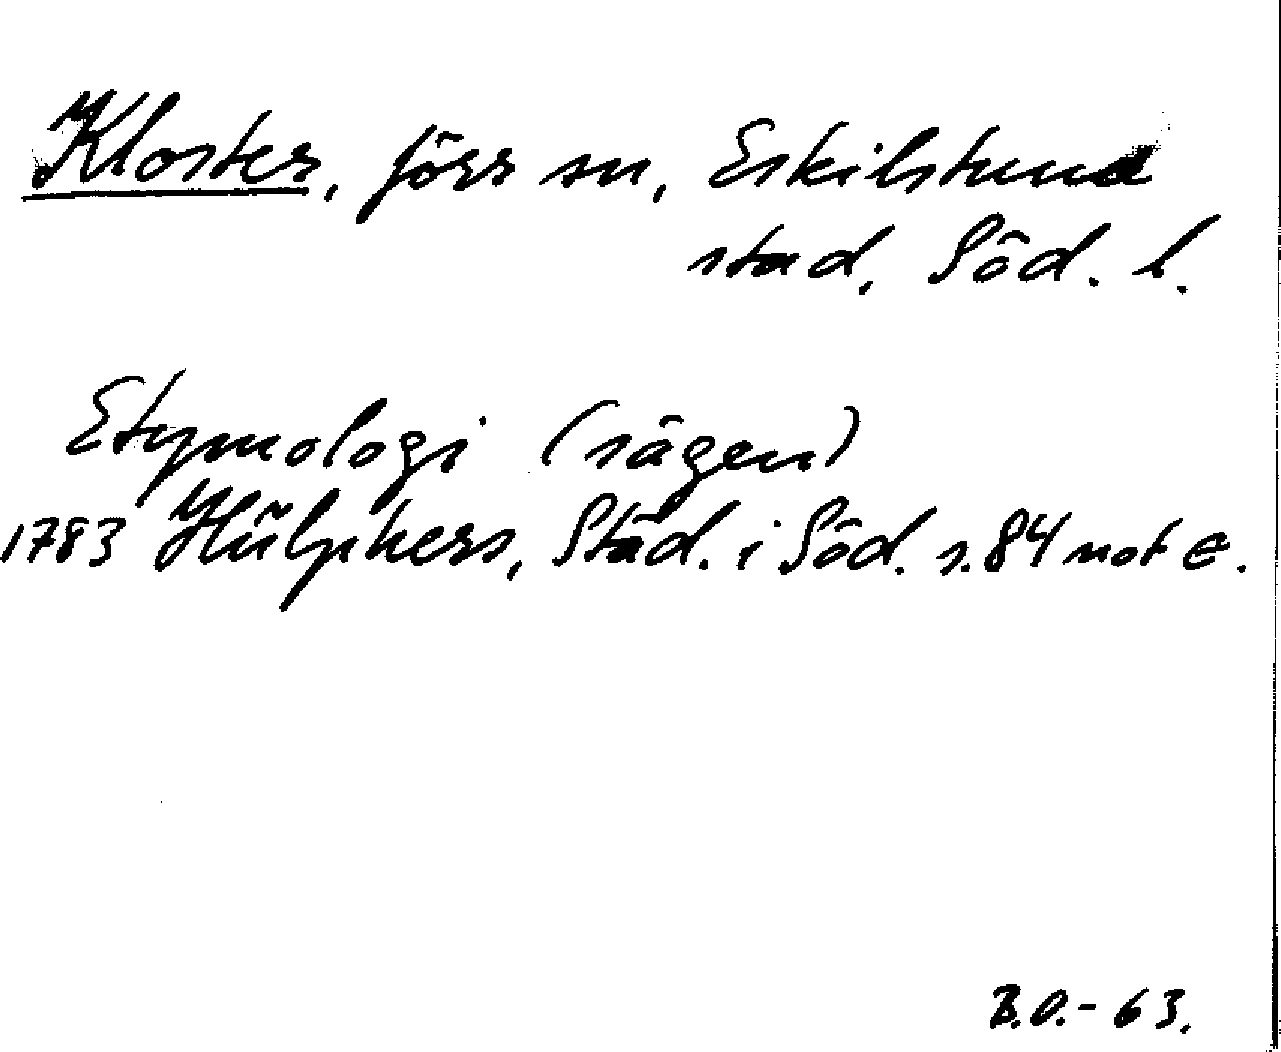 Kloster, förr sn, Eskilstuna
stad, Söd. l.
Etymologi (sägen)
1783 Hülphers, Städ. i Söd. s. 84 not e.
B.O.-63.